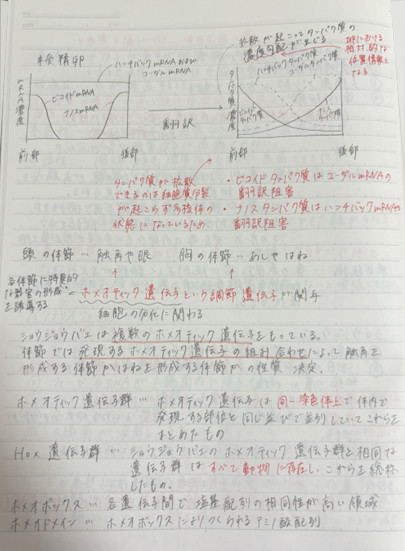 未受精卵
ハンチバックmRNAおよび
コーダルmRNA
mRNA濃度
ビコイドmRNA
ナノスmRNA
前部
後部
翻訳
拡散が起こってタンパク質の
濃度勾配が生じる
胚における
相対的な
位置情報と
なる
タンパク質濃度
ハンチバックタンパク質
コーダルタンパク質
ビコイド
タンパク質
ナノス
タンパク質
前部
後部
タンパク質が拡散
できるのは細胞質分裂
が起こらず多核体の
状態になっているため
・ビコイドタンパク質はコーダルmRNAの
翻訳阻害
・ナノスタンパク質はハンチバックmRNAの
翻訳阻害
頭の体節…触角や眼
胸の体節…あしやはね
各体節に特異的
な器官の形成
を誘導する
=ホメオティック遺伝子という調節遺伝子が関与
細胞の分化に関わる
ショウジョウバエは複数のホメオティック遺伝子をもっている。
体節では発現するホメオティック遺伝子の組み合わせによって触角を
形成する体節かはねを形成する体節かの性質 決定。
ホメオティック遺伝子群…ホメオティック遺伝子は同一染色体上で体内で
発現する部位と同じ並びで並列していてこれらを
まとめたもの
Hox遺伝子群…ショウジョウバエのホメオティック遺伝子群と相同な
遺伝子群はすべて動物に存在し、これらを総称
したもの。
ホメオボックス…各遺伝子間で塩基配列の相同性が高い領域
ホメオドメイン…ホメオボックスによりつくられるアミノ酸配列